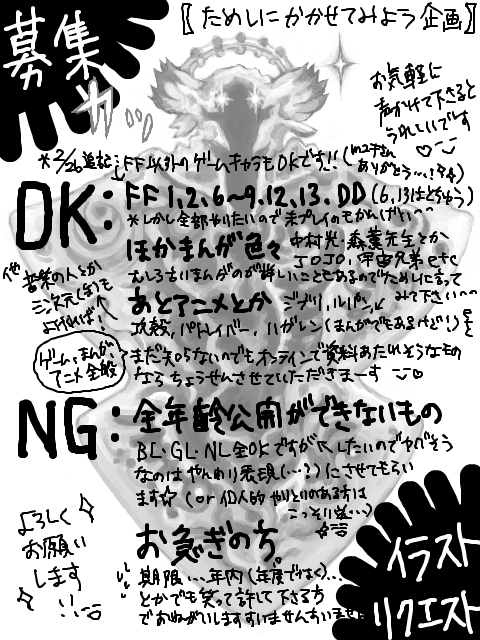 〖ためしにかかせてみよう企画〗
募集
お気軽に
声かけて下さると
うれしいです
*2/26追記:FF以外のゲームキャラもOKです!!
ありがとう
OK:
FF1,2,6〜9,12,13,DD(6,13はとちゅう)
*しかし全部やりたいので未プレイのも
ほかまんが色々
中村光・森薫先生とか
JOJO,宇宙兄弟etc
むしろまんがのが詳しいこともあるのでためしに言って
みて下さい
他
音楽の人とか
三次元(ぽ)も
よければ!
あとアニメとか
ジブリ,ルパン,
攻殻,パトレイバー,ハガレン(まんがでもあるけど!)
ゲーム,まんが
アニメ全般
まだ知らないのでもオンラインで資料あたれそうなもの
ならちょうせんさせていただきまーす
NG:
全年齢公開ができないもの
BL・GL・NL全OKですが したいのでヤバそう
なのはやんわり表現(…?)にさせてもらい
ます☆(or 個人的やりとりがある方は
こっそり
よろしく
お願い
します
お急ぎの方。
期限…年内(年度ではなく)…
とかでも笑って許して下さる方
でおねがいしますすいませんすいません
イラスト
リクエスト